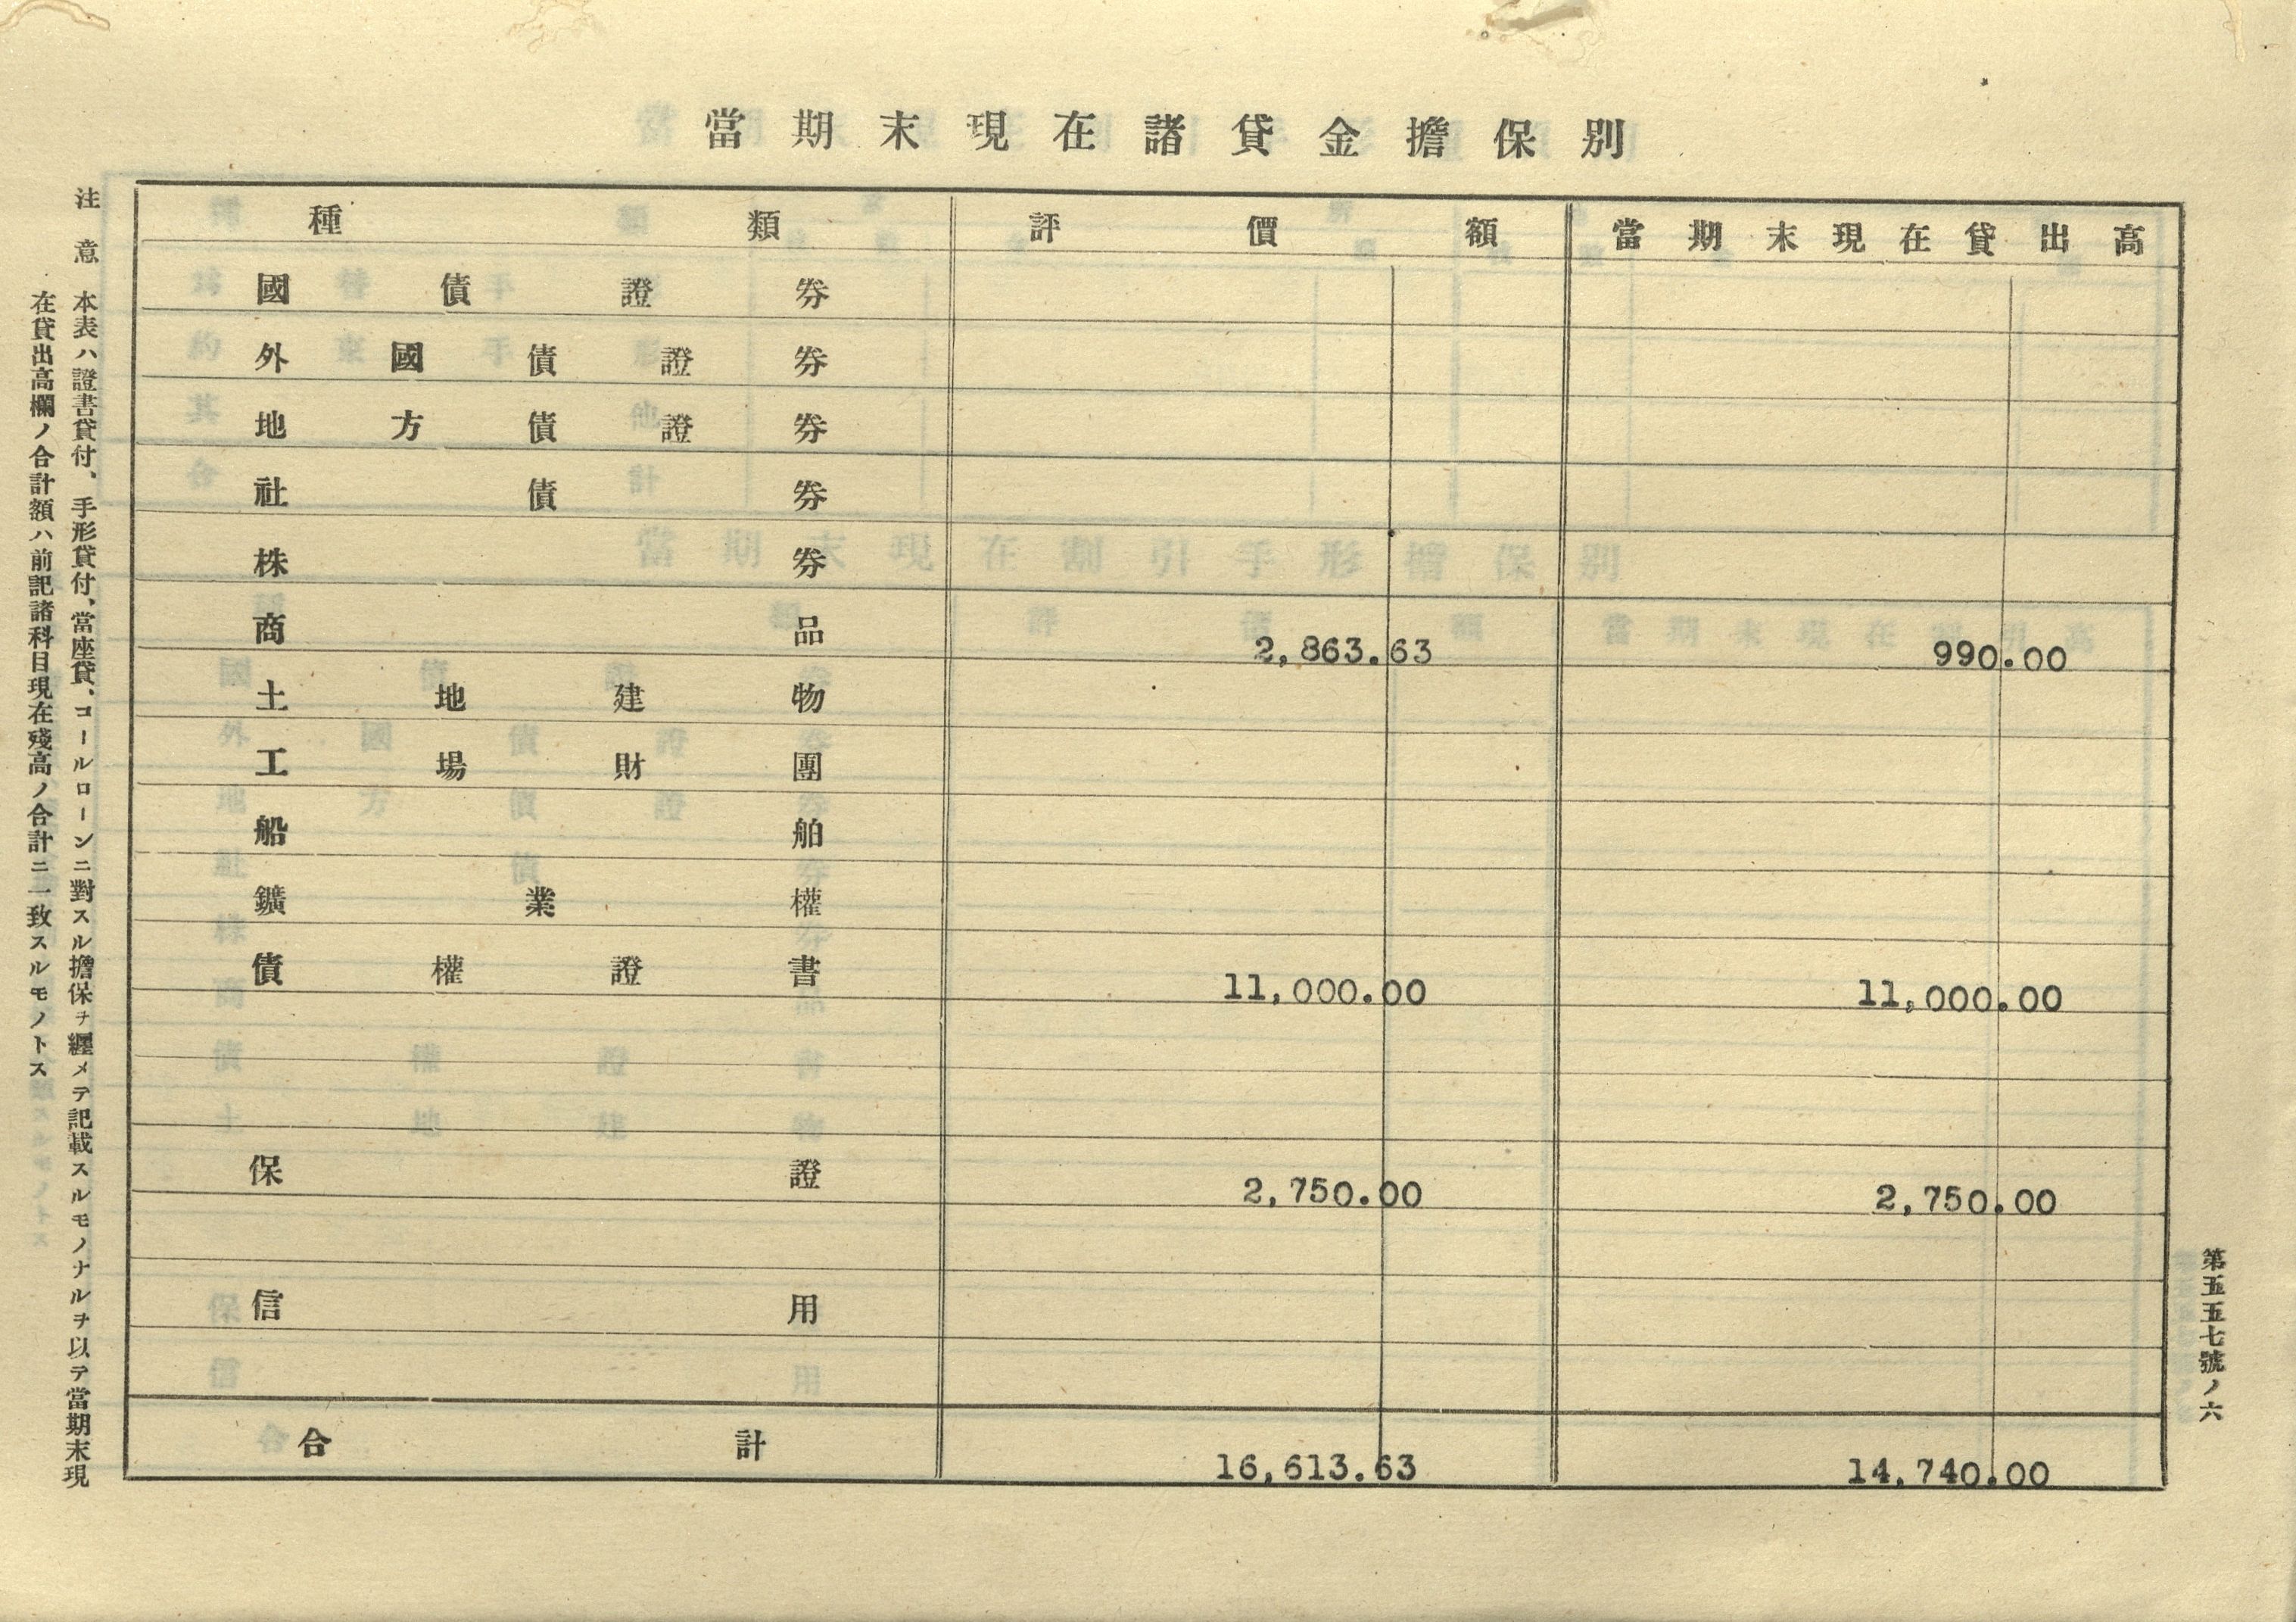 當期末現在諸貸金擔保別
種類 評價額 當期末現在貸出高
國債證券
外國債證券
地方債證券
社債券
株券
商品 2,863.63 990.00
土地建物
工場財團
船舶
鑛業權
債權證書 11,000.00 11,000.00
保證 2,750.00 2,750.00
信用
合計 16,613.63 14,740.00
第五五七號ノ六
注意 本表ハ證書貸付、手形貸付、當座貸、コールローンニ對スル擔保ヲ纒メテ記載スルモノナルヲ以テ當期末現
在貸出高欄ノ合計額ハ前記諸科目現在殘高ノ合計ニ一致スルモノトス